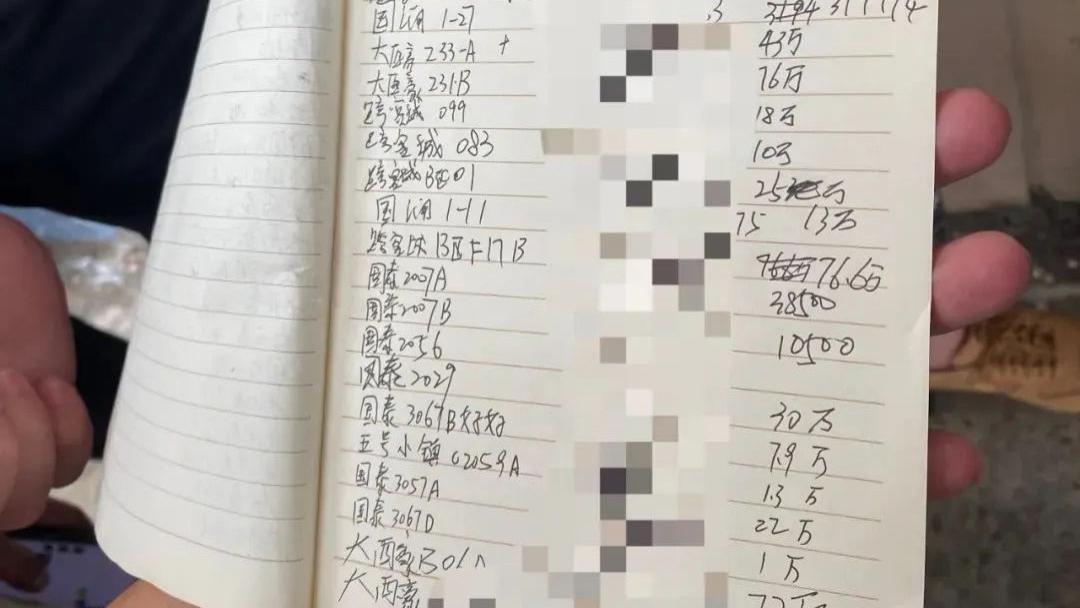 国润 1-27
大西豪 233-A + 43万
大西豪 231-B 76万
跨客城 099 18万
跨客城 083 10万
跨客城B区01 25 万
国润 1-11 75 13万
跨客城 B区F17B 76.65
国泰2007A 38500
国泰2007B
国泰2056 10500
国泰2029
国泰3067B好好 30万
五号小镇C2059A 7.9万
国泰3057A 1.3万
国泰3067D 22万
大西豪B01A 1万
大西豪